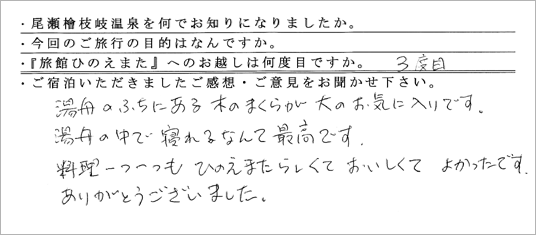 ・尾瀬檜枝岐温泉を何でお知りになりましたか。
・今回のご旅行の目的はなんですか。
・『旅館ひのえまた』へのお越しは何度目ですか。 3度目
・ご宿泊いただきましたご感想・ご意見をお聞かせ下さい。
湯舟のふちにある木のまくらが大のお気に入りです。
湯舟の中で寝れるなんて最高です.
料理一つ一つも ひのえまたらしくて おいしくて よかったです.
ありがとうございました。